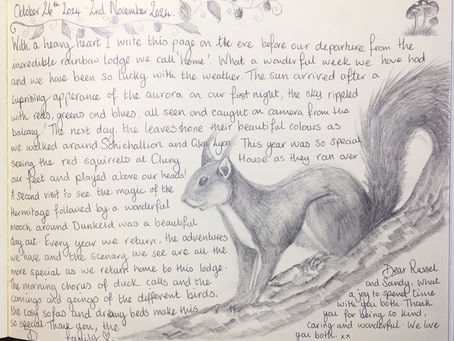 October 26th 2024 - 2nd November 2024.
With a heavy heart I write this page on the eve before our departure from the
incredible rainbow lodge we call 'home'. What a wonderful week we have had
and we have been so lucky with the weather. The sun arrived after a
suprising apperance of the aurora on our first night, the sky rippled
with reds, greens and blues, all seen and caught on camera from the
balcony! The next day, the leaves shone their beautiful colours as
we walked around Schiehallion and Glen Lyon. This year was so special
seeing the red squirrels at Cluny House as they ran over
our feet and played above our heads!
A second visit to see the magic of the
Hermitage followed by a wonderful
mooch around Dunkeld was a beautiful
day out. Every year we return, the adventures
we have and the scenery we see are all the
more special as we return home to this lodge.
The morning chorus of duck calls and the
comings and goings of the different birds,
the cosy sofas and dreamy beds make this
so special. Thank you, the
family ♡
Dear Russel
and Sandy. What
a joy to spend time
with you both. Thank
you for being so kind,
caring and wonderful. We love
you both. xx